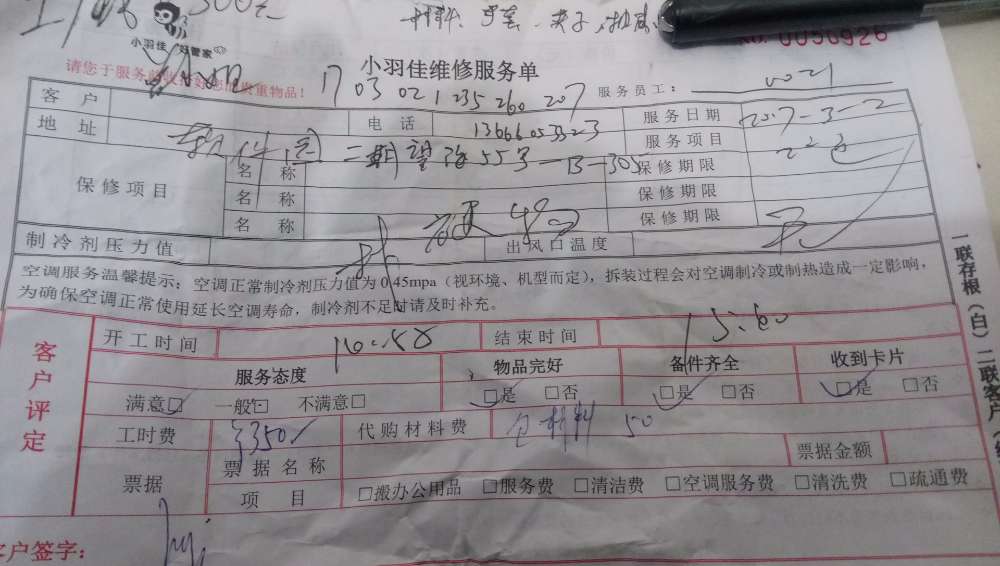 小羽佳 好管家
No. 0050926
请您于服务前收好您的贵重物品!
小羽佳维修服务单
17 03 02 1 235 260 207
服务员工:
客户
电话 13666053323
服务日期 2017-3-2
地址 二期望海55号-B-305
服务项目
保修项目
名称 保修期限
名称 保修期限
名称 保修期限
制冷剂压力值 出风口温度
空调服务温馨提示:空调正常制冷剂压力值为0.45mpa(视环境、机型而定),拆装过程会对空调制冷或制热造成一定影响,
为确保空调正常使用延长空调寿命,制冷剂不足时请及时补充。
一联存根(白)二联客户
客户评定
开工时间 结束时间
服务态度 物品完好 备件齐全 收到卡片
满意□ 一般□ 不满意□ □是 □否 □是 □否 □是 □否
工时费 350 代购材料费 包材料 50
票据 票据名称 票据金额
项目 □搬办公用品 □服务费 □清洁费 □空调服务费 □清洗费 □疏通费
客户签字: